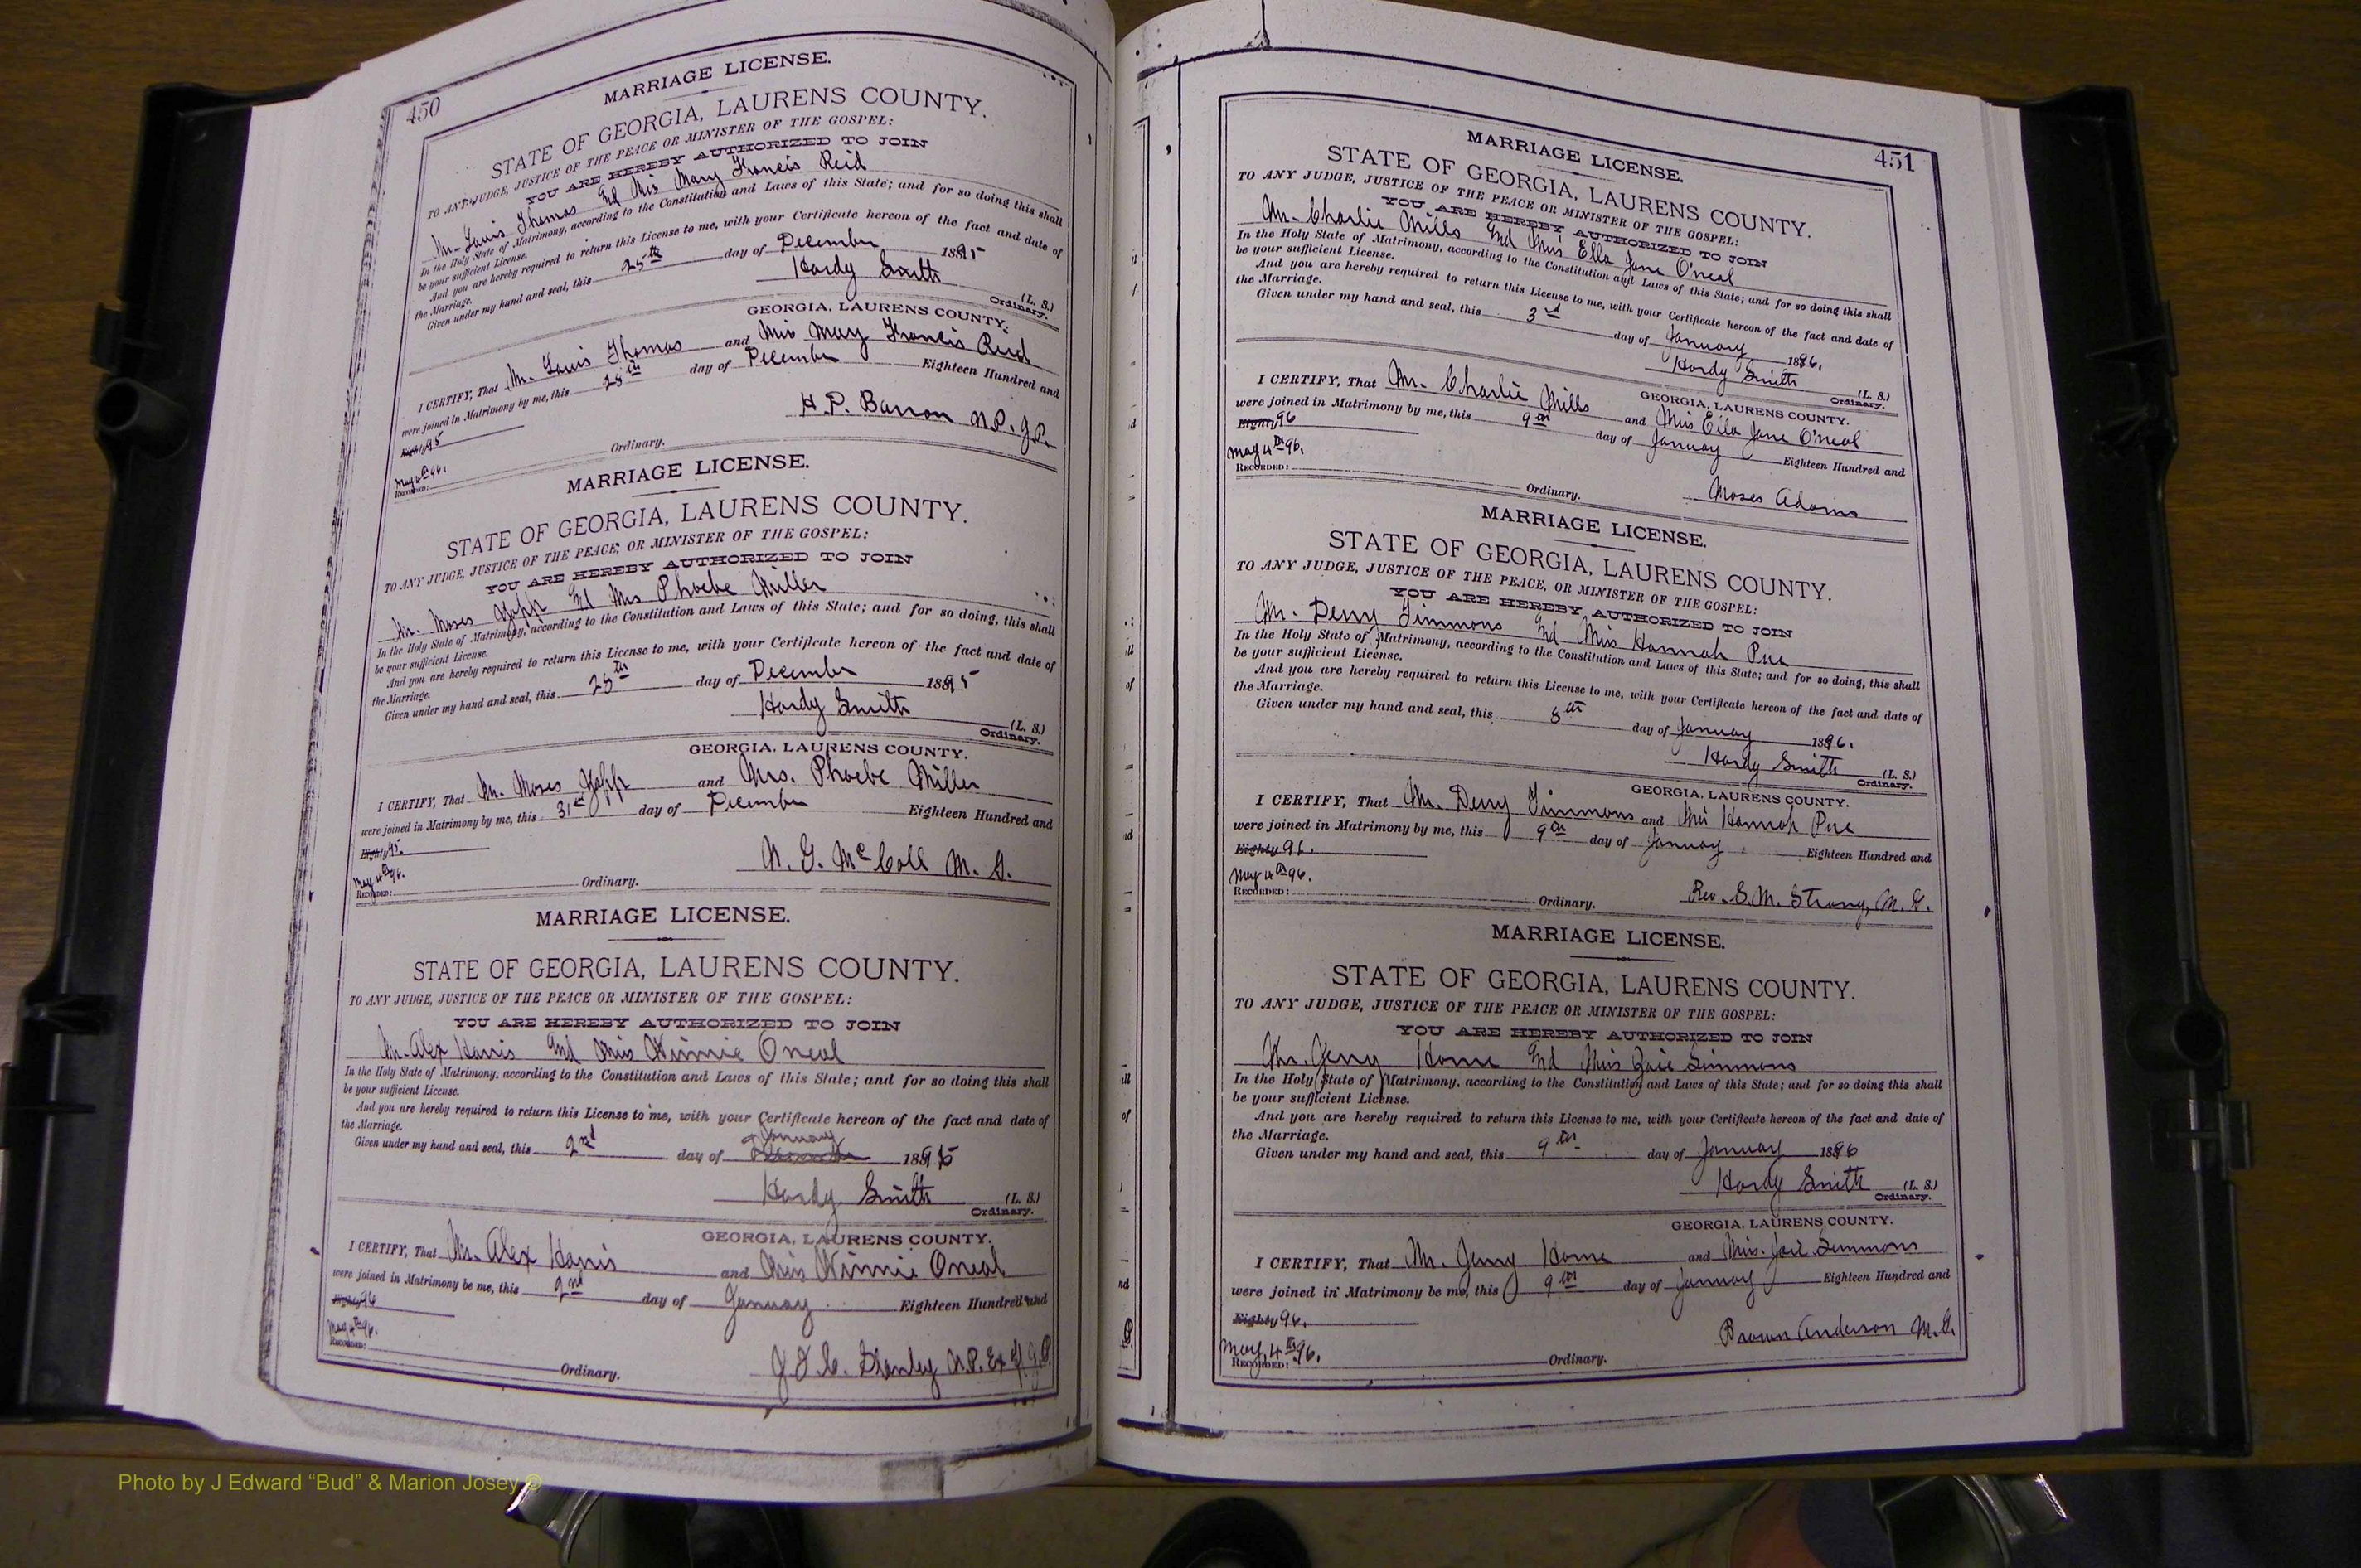 450
MARRIAGE LICENSE.
STATE OF GEORGIA, LAURENS COUNTY.
TO ANY JUDGE, JUSTICE OF THE PEACE OR MINISTER OF THE GOSPEL:
YOU ARE HEREBY AUTHORIZED TO JOIN
Mr. Louis Thomas and Miss Mary Francis Reid
In the Holy State of Matrimony, according to the Constitution and Laws of this State; and for so doing this shall
be your sufficient License.
And you are hereby required to return this License to me, with your Certificate hereon of the fact and date of
the Marriage.
Given under my hand and seal, this 25th day of December 1895
Hardy Smith (L. S.)
Ordinary.
GEORGIA, LAURENS COUNTY.
I CERTIFY, That Mr. Louis Thomas and Miss Mary Francis Reid
were joined in Matrimony by me, this 28th day of December Eighteen Hundred and
Eighty 95
H. P. Barron N.P. J.P.
May 4th 96.
RECORDED: Ordinary.
MARRIAGE LICENSE.
STATE OF GEORGIA, LAURENS COUNTY.
TO ANY JUDGE, JUSTICE OF THE PEACE, OR MINISTER OF THE GOSPEL:
YOU ARE HEREBY AUTHORIZED TO JOIN
Mr. Moses Yopp and Mrs Phoebe Miller
In the Holy State of Matrimony, according to the Constitution and Laws of this State; and for so doing, this shall
be your sufficient License.
And you are hereby required to return this License to me, with your Certificate hereon of the fact and date of
the Marriage.
Given under my hand and seal, this 28th day of December 1895
Hardy Smith (L. S.)
Ordinary.
GEORGIA, LAURENS COUNTY.
I CERTIFY, That Mr. Moses Yopp and Mrs. Phoebe Miller
were joined in Matrimony by me, this 31st day of December Eighteen Hundred and
Eighty 95.
N. G. McCall M. G.
May 4th 96.
RECORDED: Ordinary.
MARRIAGE LICENSE.
STATE OF GEORGIA, LAURENS COUNTY.
TO ANY JUDGE, JUSTICE OF THE PEACE OR MINISTER OF THE GOSPEL:
YOU ARE HEREBY AUTHORIZED TO JOIN
Mr. Alex Harris and Miss Winnie Oneal
In the Holy State of Matrimony, according to the Constitution and Laws of this State; and for so doing this shall
be your sufficient License.
And you are hereby required to return this License to me, with your Certificate hereon of the fact and date of
the Marriage.
January
Given under my hand and seal, this 2nd day of December 189
Hardy Smith (L. S.)
Ordinary.
GEORGIA, LAURENS COUNTY.
I CERTIFY, That Mr. Alex Harris and Miss Winnie Oneal
were joined in Matrimony be me, this 2nd day of January Eighteen Hundred and
Eighty 96
May 4th 96.
RECORDED: Ordinary. Stanley N.P. Ex of J.P.
451
MARRIAGE LICENSE.
STATE OF GEORGIA, LAURENS COUNTY.
TO ANY JUDGE, JUSTICE OF THE PEACE OR MINISTER OF THE GOSPEL:
YOU ARE HEREBY AUTHORIZED TO JOIN
Mr. Charlie Mills and Miss Ella Jane O'neal
In the Holy State of Matrimony, according to the Constitution and Laws of this State; and for so doing this shall
be your sufficient License.
And you are hereby required to return this License to me, with your Certificate hereon of the fact and date of
the Marriage.
Given under my hand and seal, this 3rd day of January 1896.
Hardy Smith (L. S.)
Ordinary.
GEORGIA, LAURENS COUNTY.
I CERTIFY, That Mr. Charlie Mills and Miss Ella Jane O'neal
were joined in Matrimony by me, this 9th day of January Eighteen Hundred and
Eighty 96
May 4th 96.
RECORDED: Ordinary. Moses Adams
MARRIAGE LICENSE.
STATE OF GEORGIA, LAURENS COUNTY.
TO ANY JUDGE, JUSTICE OF THE PEACE, OR MINISTER OF THE GOSPEL:
YOU ARE HEREBY AUTHORIZED TO JOIN
Mr. Derry Timmons and Miss Hannah Pue
In the Holy State of Matrimony, according to the Constitution and Laws of this State; and for so doing, this shall
be your sufficient License.
And you are hereby required to return this License to me, with your Certificate hereon of the fact and date of
the Marriage.
Given under my hand and seal, this 8th day of January 1896.
Hardy Smith (L. S.)
Ordinary.
GEORGIA, LAURENS COUNTY.
I CERTIFY, That Mr. Derry Timmons and Miss Hannah Pue
were joined in Matrimony by me, this 9th day of January Eighteen Hundred and
Eighty 96.
May 4th 96.
RECORDED: Ordinary. Rev. S. M. Strong, M. G.
MARRIAGE LICENSE.
STATE OF GEORGIA, LAURENS COUNTY.
TO ANY JUDGE, JUSTICE OF THE PEACE OR MINISTER OF THE GOSPEL:
YOU ARE HEREBY AUTHORIZED TO JOIN
Mr. Jerry Horne and Miss Josie Simmons
In the Holy State of Matrimony, according to the Constitution and Laws of this State; and for so doing this shall
be your sufficient License.
And you are hereby required to return this License to me, with your Certificate hereon of the fact and date of
the Marriage.
Given under my hand and seal, this 9th day of January 1896
Hardy Smith (L. S.)
Ordinary.
GEORGIA, LAURENS COUNTY.
I CERTIFY, That Mr. Jerry Horne and Miss. Josie Simmons
were joined in Matrimony be me, this 9th day of January Eighteen Hundred and
Eighty 96.
Brown Anderson M.G.
May 4th 96.
RECORDED: Ordinary.
Photo by J Edward “Bud” & Marion Josey ©